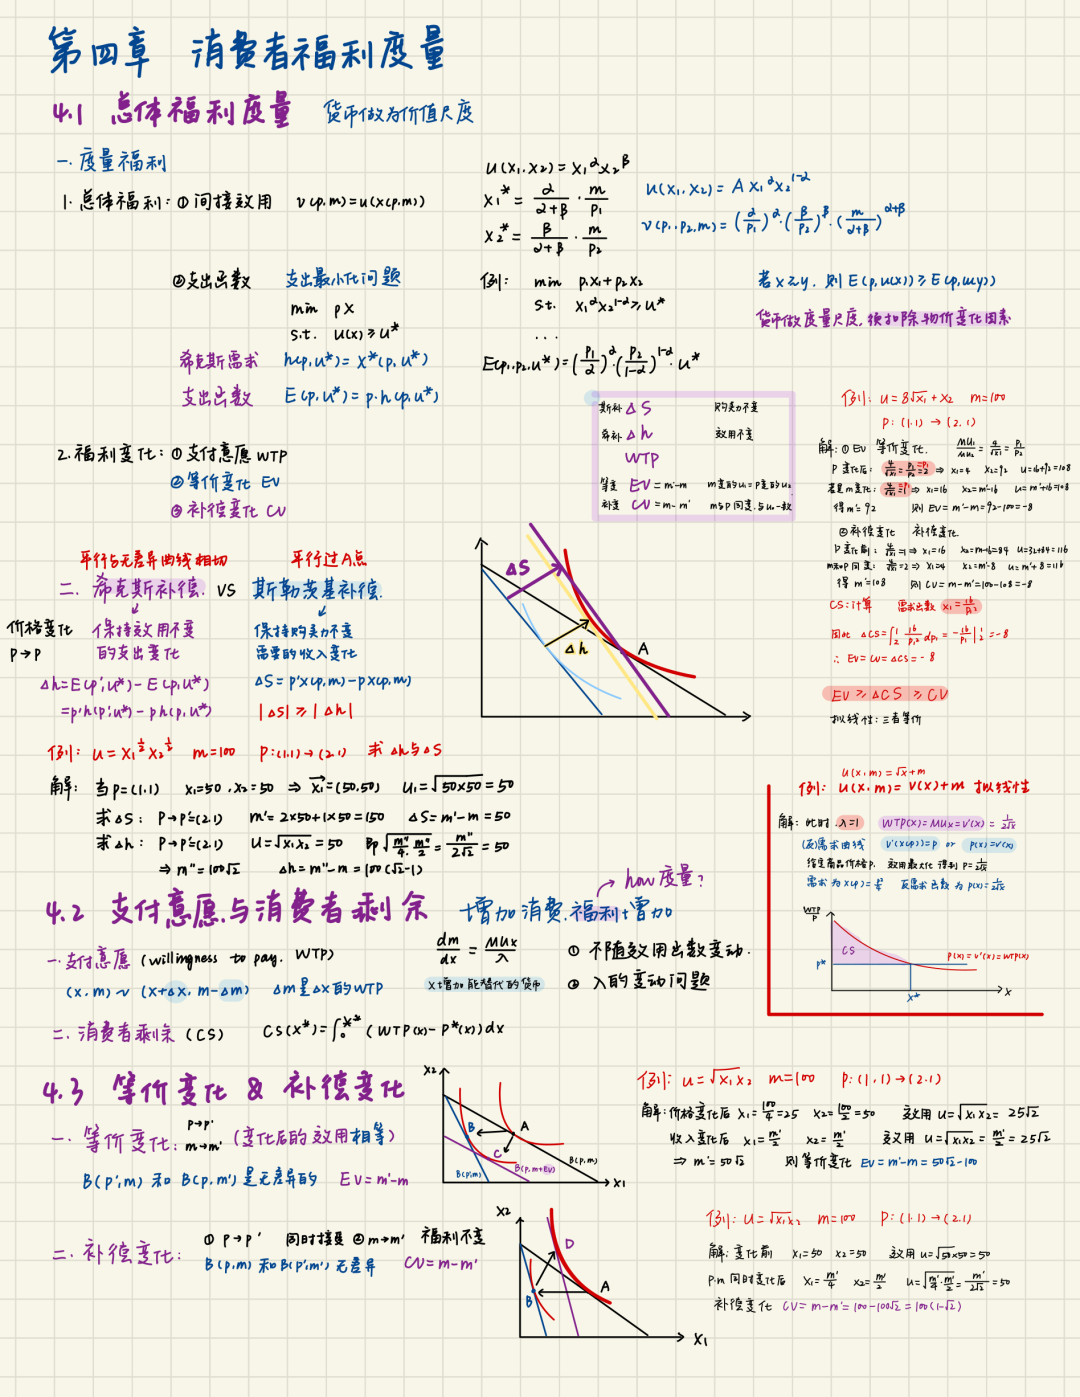 第四章 消费者福利度量
4.1 总体福利度量 货币做为价值尺度
一. 度量福利
1. 总体福利: ① 间接效用 v(p,m)=u(x(p,m))
u(x₁,x₂)=x₁^α x₂^β
x₁*= α/(α+β) · m/p₁
x₂*= β/(α+β) · m/p₂
u(x₁,x₂)= A x₁^α x₂^(1-α)
v(p₁,p₂,m)=(α/p₁)^α·(β/p₂)^β·(m/(α+β))^(α+β)
②支出函数 支出最小化问题
min px
s.t. u(x)≥u*
希克斯需求 h(p,u*)=x*(p,u*)
支出函数 E(p,u*)=p·h(p,u*)
例: min p₁x₁+p₂x₂
s.t. x₁^α x₂^(1-α)≥u*
...
E(p₁,p₂,u*)=(p₁/α)^α·(p₂/(1-α))^(1-α)·u*
若x≿y, 则 E(p,u(x))≥E(p,u(y))
货币做度量尺度,须扣除物价变化因素
2.福利变化: ① 支付意愿 WTP
②等价变化 EV
③ 补偿变化 CV
斯补 ΔS 购买力不变
希补 Δh 效用不变
WTP
等变 EV=m'-m m变的u₁=p变的u₂
补变 CV=m-m' m与p同变,与u₀一致
例: u=8√x₁+x₂ m=100
p: (1,1)→(2,1)
解: ① EV 等价变化. MU₁/MU₂=4/√x₁=p₁/p₂
p变化后: 4/√x₁=p₁/p₂=2 ⇒ x₁=4 x₂=92 u=16+92=108
若是m变化: 4/√x₁=1 ⇒ x₁=16 x₂=m'-16 u=m'+16=108
得m'=92 则 EV=m'-m=92-100=-8
②补偿变化 补偿变化.
p变化前: 4/√x₁=1⇒x₁=16 x₂=m-16=84 u=32+84=116
m和p同变: 4/√x₁=2 ⇒ x₁=4 x₂=m'-8 u=m'+8=116
得 m'=108 则 CV=m-m'=100-108=-8
CS:计算 需求函数 x₁=16/p₁²
因此 ΔCS=∫₁² 16/p₁² dp₁=-16/p₁|₁²=-8
∴ EV=CV=ΔCS=-8
EV ≥ ΔCS ≥ CV
拟线性:三者等价
平行与无差异曲线相切 平行过A点
二. 希克斯补偿. VS 斯勒茨基补偿.
价格变化 保持效用不变 保持购买力不变
p→p' 的支出变化 需要的收入变化
Δh=E(p',u*)-E(p,u*) ΔS=p'x(p,m)-px(p,m)
=p'h(p',u*)-ph(p,u*) |ΔS|≥|Δh|
ΔS
Δh
A
例: u=x₁^½x₂^½ m=100 p:(1,1)→(2,1) 求Δh与ΔS
解: 当p=(1,1) x₁=50,x₂=50 ⇒ x₁=(50,50) u₁=√50×50=50
求ΔS: p→p'=(2,1) m'=2×50+1×50=150 ΔS=m'-m=50
求Δh: p→p'=(2,1) u=√x₁x₂=50 即√m''/4·m''/2=m''/2√2=50
⇒ m''=100√2 Δh=m''-m=100(√2-1)
u(x,m)=√x+m
例: u(x,m)=v(x)+m 拟线性
解: 此时 λ=1 WTP(x)=MUx=v'(x)=1/2√x
(反)需求曲线 v'(x(p))=p or p(x)=v'(x)
给定商品价格p, 效用最大化得到 p=1/2√x
反需求函数为 p(x)=1/2√x
WTP
P
CS
P*
p(x)=v'(x)=WTP(x)
x*
x
4.2 支付意愿与消费者剩余 增加消费,福利增加
how 度量?
一.支付意愿 (willingness to pay. WTP)
(x,m)~(x+Δx, m-Δm) Δm是Δx的WTP
dm/dx = MUx/λ
x增加能替代的货币
① 不随效用函数变动.
② λ的变动问题
二. 消费者剩余 (CS) CS(x*)=∫₀^x*(WTP(x)-p*(x))dx
4.3 等价变化 & 补偿变化
一. 等价变化: p→p' m→m' (变化后的效用相等)
B(p',m) 和 B(p,m') 是无差异的 EV=m'-m
x₂
B
A
C
B(p',m)
B(p,m+EV)
B(p,m)
x₁
例: u=√x₁x₂ m=100 p:(1,1)→(2,1)
解:价格变化后 x₁=100/4=25 x₂=100/2=50 效用 u=√x₁x₂=25√2
收入变化后 x₁=m'/2 x₂=m'/2 效用 u=√x₁x₂=m'/2=25√2
⇒ m'=50√2 则等价变化 EV=m'-m=50√2-100
二. 补偿变化: ① p→p' 同时接受 ② m→m' 福利不变
B(p,m)和B(p',m')无差异 CV=m-m'
x₂
D
A
B
x₁
例: u=√x₁x₂ m=100 p:(1,1)→(2,1)
解: 变化前 x₁=50 x₂=50 效用 u=√50×50=50
p.m 同时变化后 x₁=m'/4 x₂=m'/2 u=√m'/4·m'/2=m'/2√2=50
补偿变化 CV=m-m'=100-100√2=100(1-√2)